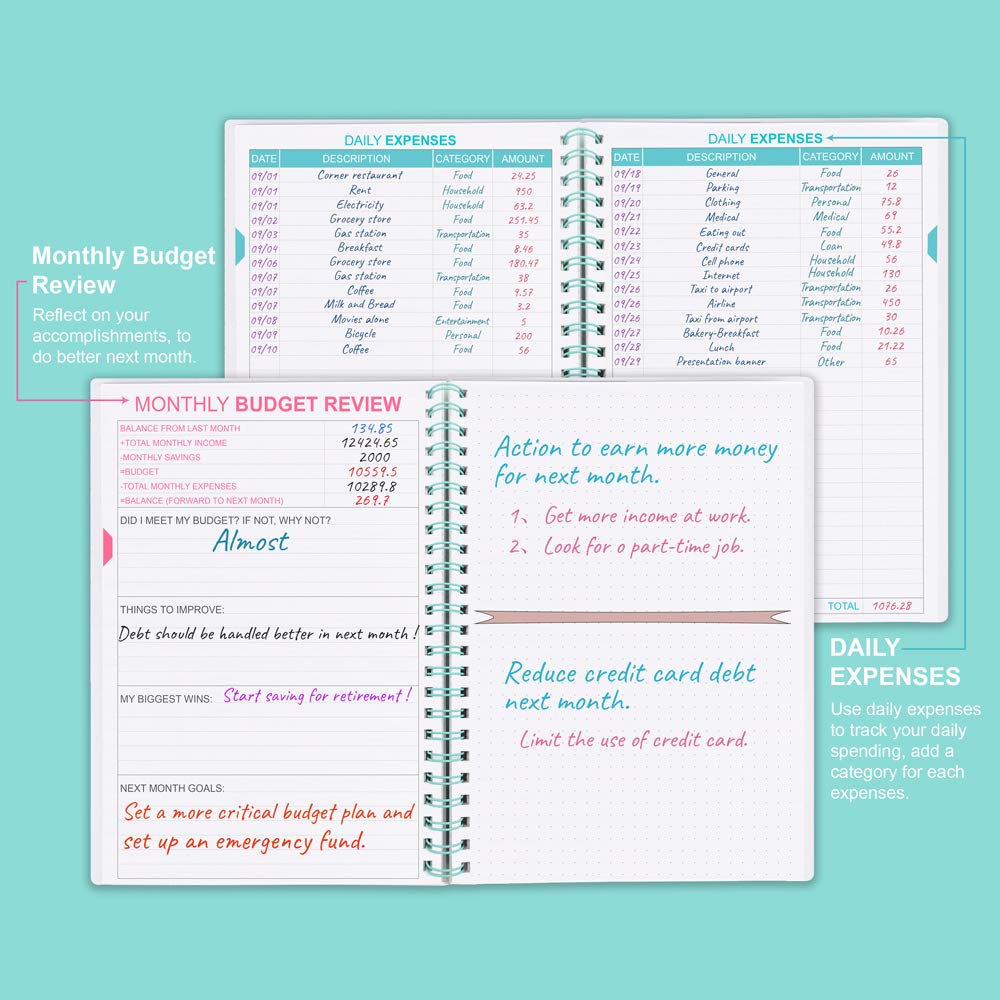 DAILY EXPENSES
DATE DESCRIPTION CATEGORY AMOUNT
09/01 Corner restaurant Food 24.25
09/01 Rent Household 950
09/01 Electricity Household 63.2
09/02 Grocery store Food 251.45
09/03 Gas station Transportation 35
09/04 Breakfast Food 8.46
09/06 Grocery store Food 180.47
09/07 Gas station Transportation 38
09/07 Coffee Food 9.57
09/07 Milk and Bread Food 3.2
09/08 Movies alone Entertainment 5
09/09 Bicycle Personal 200
09/10 Coffee Food 56
DAILY EXPENSES
DATE DESCRIPTION CATEGORY AMOUNT
09/18 General Food 26
09/19 Parking Transportation 12
09/20 Clothing Personal 75.8
09/21 Medical Medical 69
09/22 Eating out Food 55.2
09/23 Credit cards Loan 49.8
09/24 Cell phone Household 56
09/25 Internet Household 130
09/26 Taxi to airport Transportation 26
09/26 Airline Transportation 450
09/26 Taxi from airport Transportation 30
09/27 Bakery-Breakfast Food 10.26
09/28 Lunch Food 21.22
09/29 Presentation banner Other 65
TOTAL 1076.28
Monthly Budget
Review
Reflect on your
accomplishments, to
do better next month.
MONTHLY BUDGET REVIEW
BALANCE FROM LAST MONTH 134.85
+TOTAL MONTHLY INCOME 12424.65
-MONTHLY SAVINGS 2000
=BUDGET 10559.5
-TOTAL MONTHLY EXPENSES 10289.8
=BALANCE (FORWARD TO NEXT MONTH) 269.7
DID I MEET MY BUDGET? IF NOT, WHY NOT?
Almost
THINGS TO IMPROVE:
Debt should be handled better in next month!
MY BIGGEST WINS: Start saving for retirement!
NEXT MONTH GOALS:
Set a more critical budget plan and
set up an emergency fund.
Action to earn more money
for next month.
1、 Get more income at work.
2、 Look for o part-time job.
Reduce credit card debt
next month.
Limit the use of credit card.
DAILY
EXPENSES
Use daily expenses
to track your daily
spending, add a
category for each
expenses.